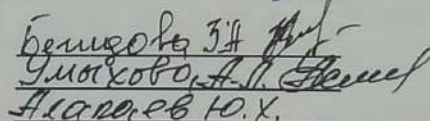 Бешдова З.А
Умыхова, А.Л.
Агараев Ю.Х.